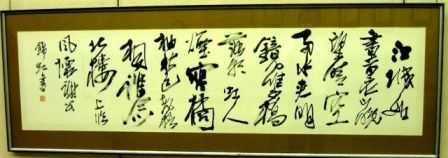 江城如
畫裏山晚
望晴空
兩水夾明
鏡雙橋
落彩虹人
煙寒橘
柚秋色老梧
桐誰念
北樓上臨
風懷謝公